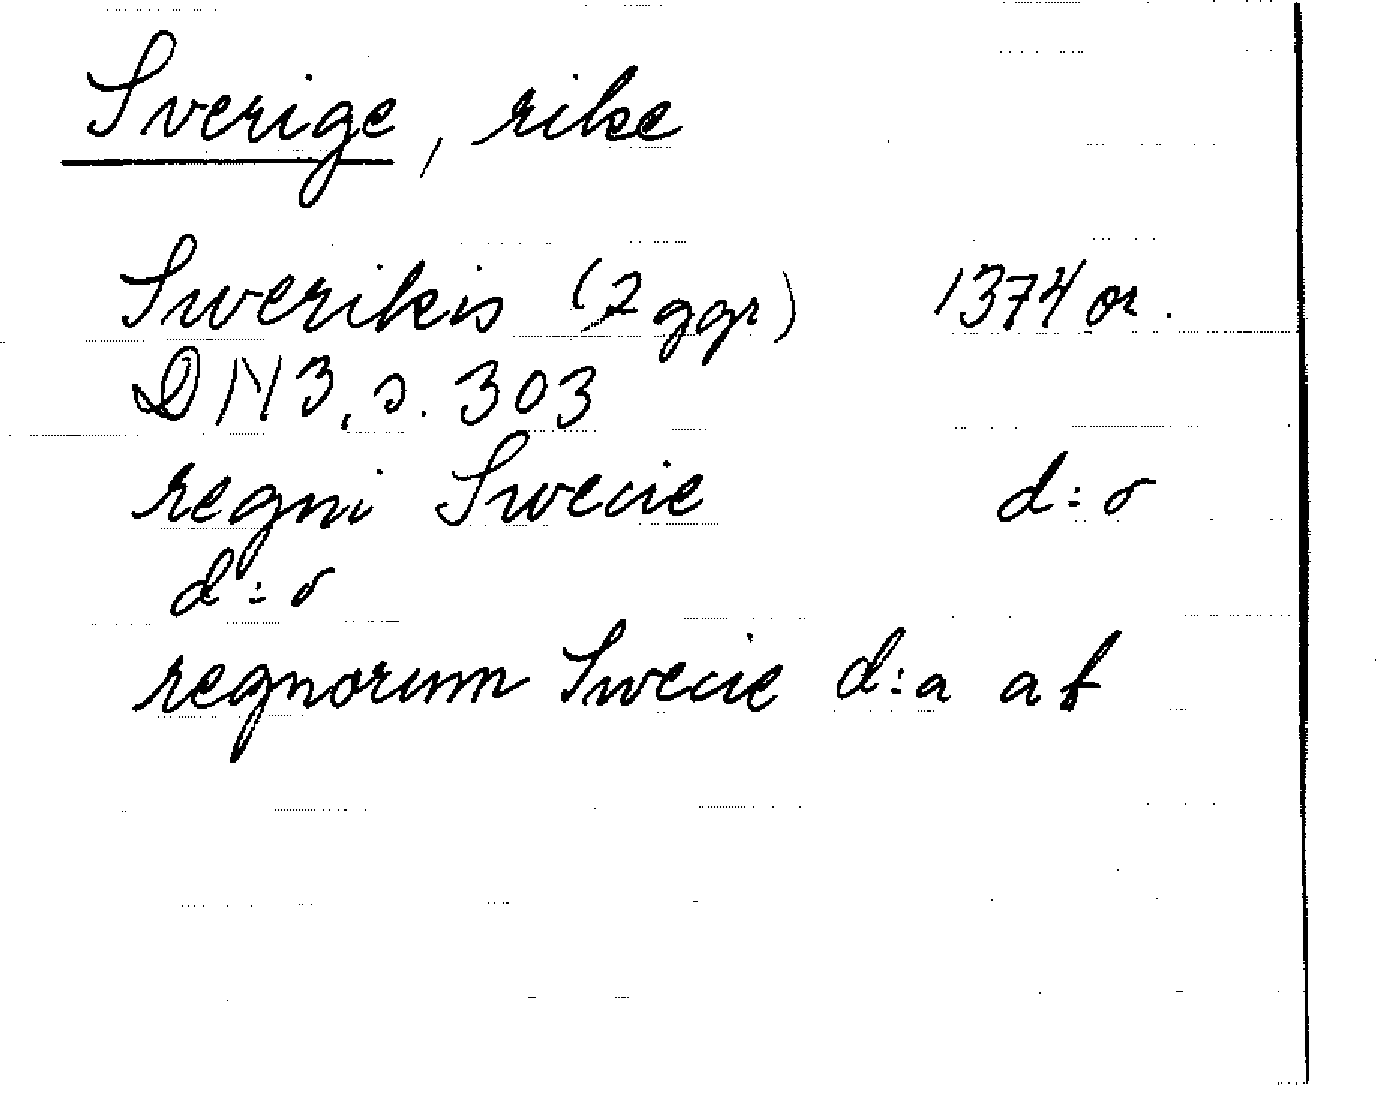 Sverige, rike
Swerikis (2 ggr) 1374 or.
DN 3, s. 303
regni Swecie d:o
d:o
regnorum Swecie d:a af